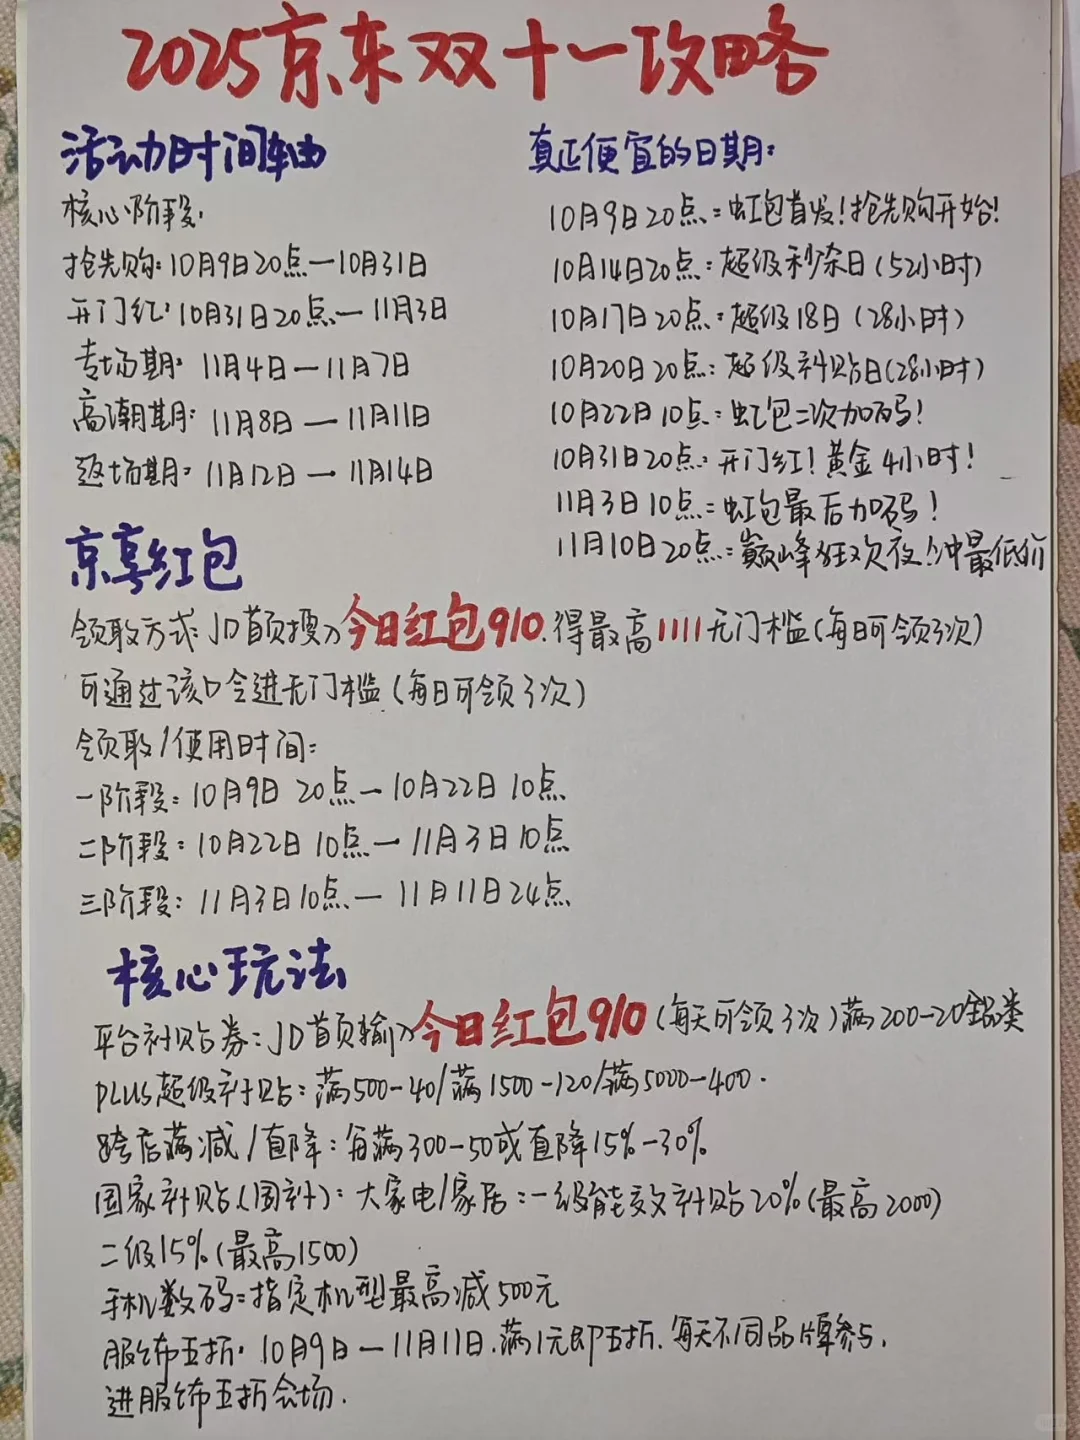 2025京东双十一攻略
活动时间轴
核心阶段:
抢先购:10月9日20点—10月31日
开门红:10月31日20点—11月3日
专场期:11月4日—11月7日
高潮期:11月8日—11月11日
返场期:11月12日—11月14日
真正便宜的日期:
10月9日20点:红包首发!抢先购开始!
10月14日20点:超级秒杀日(52小时)
10月17日20点:超级18日(28小时)
10月20日20点:超级补贴日(28小时)
10月22日10点:红包二次加码!
10月31日20点:开门红!黄金4小时!
11月3日10点:红包最后加码!
11月10日20点:巅峰狂欢夜!冲最低价
京享红包
领取方式:JD首页搜入今日红包910.得最高1111无门槛(每日可领3次)
可通过该口令进无门槛(每日可领3次)
领取/使用时间:
一阶段:10月9日 20点—10月22日 10点
二阶段:10月22日 10点—11月3日 10点
三阶段:11月3日10点—11月11日24点
核心玩法
平台补贴券:JD首页输入今日红包910(每天可领3次)满200-20全品类
PLUS超级补贴:满500-40/满1500-120/满5000-400.
跨店满减/直降:每满300-50或直降15%-30%
国家补贴(国补):大家电/家居:一级能效补贴20%(最高2000)
二级15%(最高1500)
手机数码:指定机型最高减500元
服饰五折:10月9日—11月11日.满1元即五折.每天不同品牌参与.
进服饰五折会场.